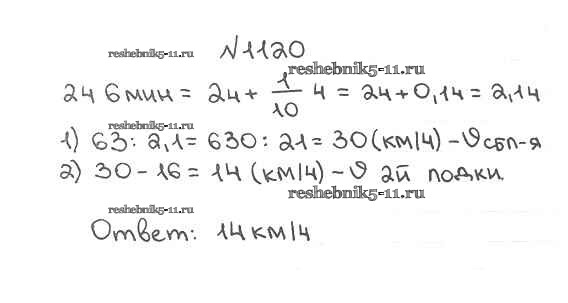 №1120
reshebnik5-11.ru
reshebnik5-11.ru
2ч 6мин = 2ч + 1/10 ч = 2ч + 0,1ч = 2,1ч
reshebnik5-11.ru
1) 63 : 2,1 = 630 : 21 = 30 (км/ч) – υ сбл-я
2) 30 – 16 = 14 (км/ч) – υ 2й лодки.
reshebnik5-11.ru
reshebnik5-11.ru
Ответ: 14 км/ч